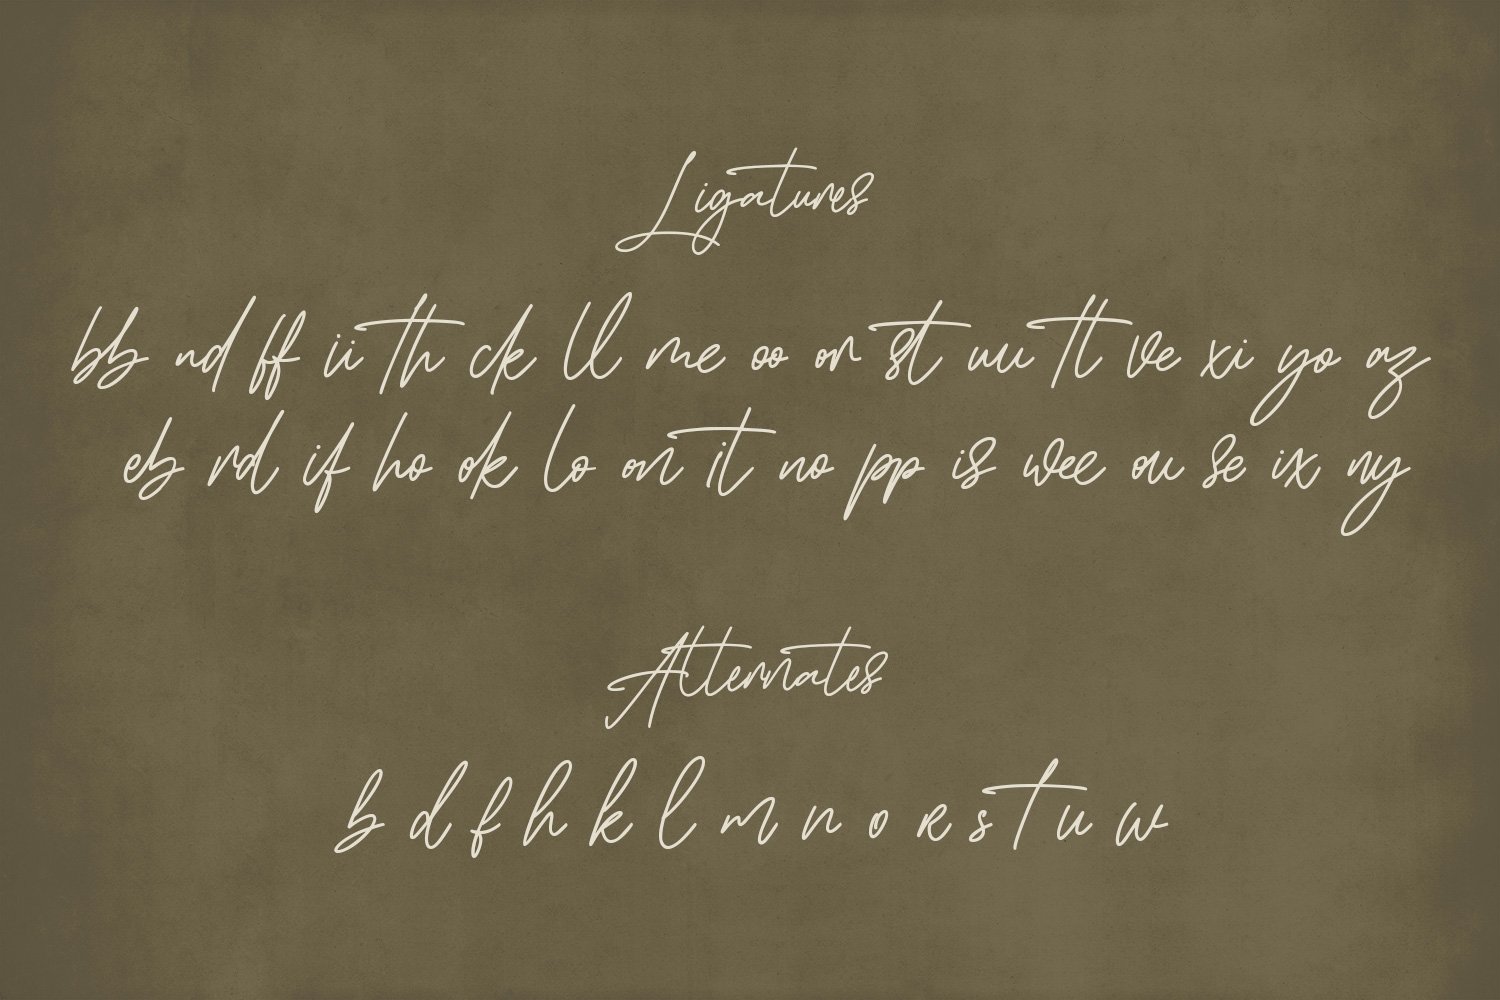 Ligatures
bb nd ff ii th ck ll me oo or st uu tt ve xi yo az
eb rd if ho ok lo on it no pp is wee ou se ix ny
Alternates
b d f h k l m n o r s t u w